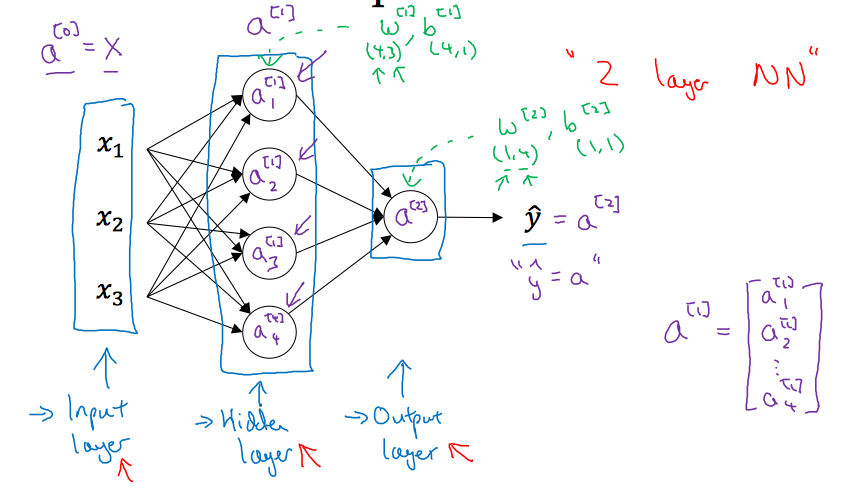 a[0] = X
a[1]
w[1], b[1]
(4,3) (4,1)
"2 layer NN"
x1
x2
x3
a1[1]
a2[1]
a3[1]
a4[4]
w[2], b[2]
(1,4) (1,1)
a[2]
ŷ = a[2]
"ŷ = a"
a[1] = [a1[1]
a2[1]
⋮
a4[1]]
→ Input
layer
→ Hidden
layer
→ Output
layer